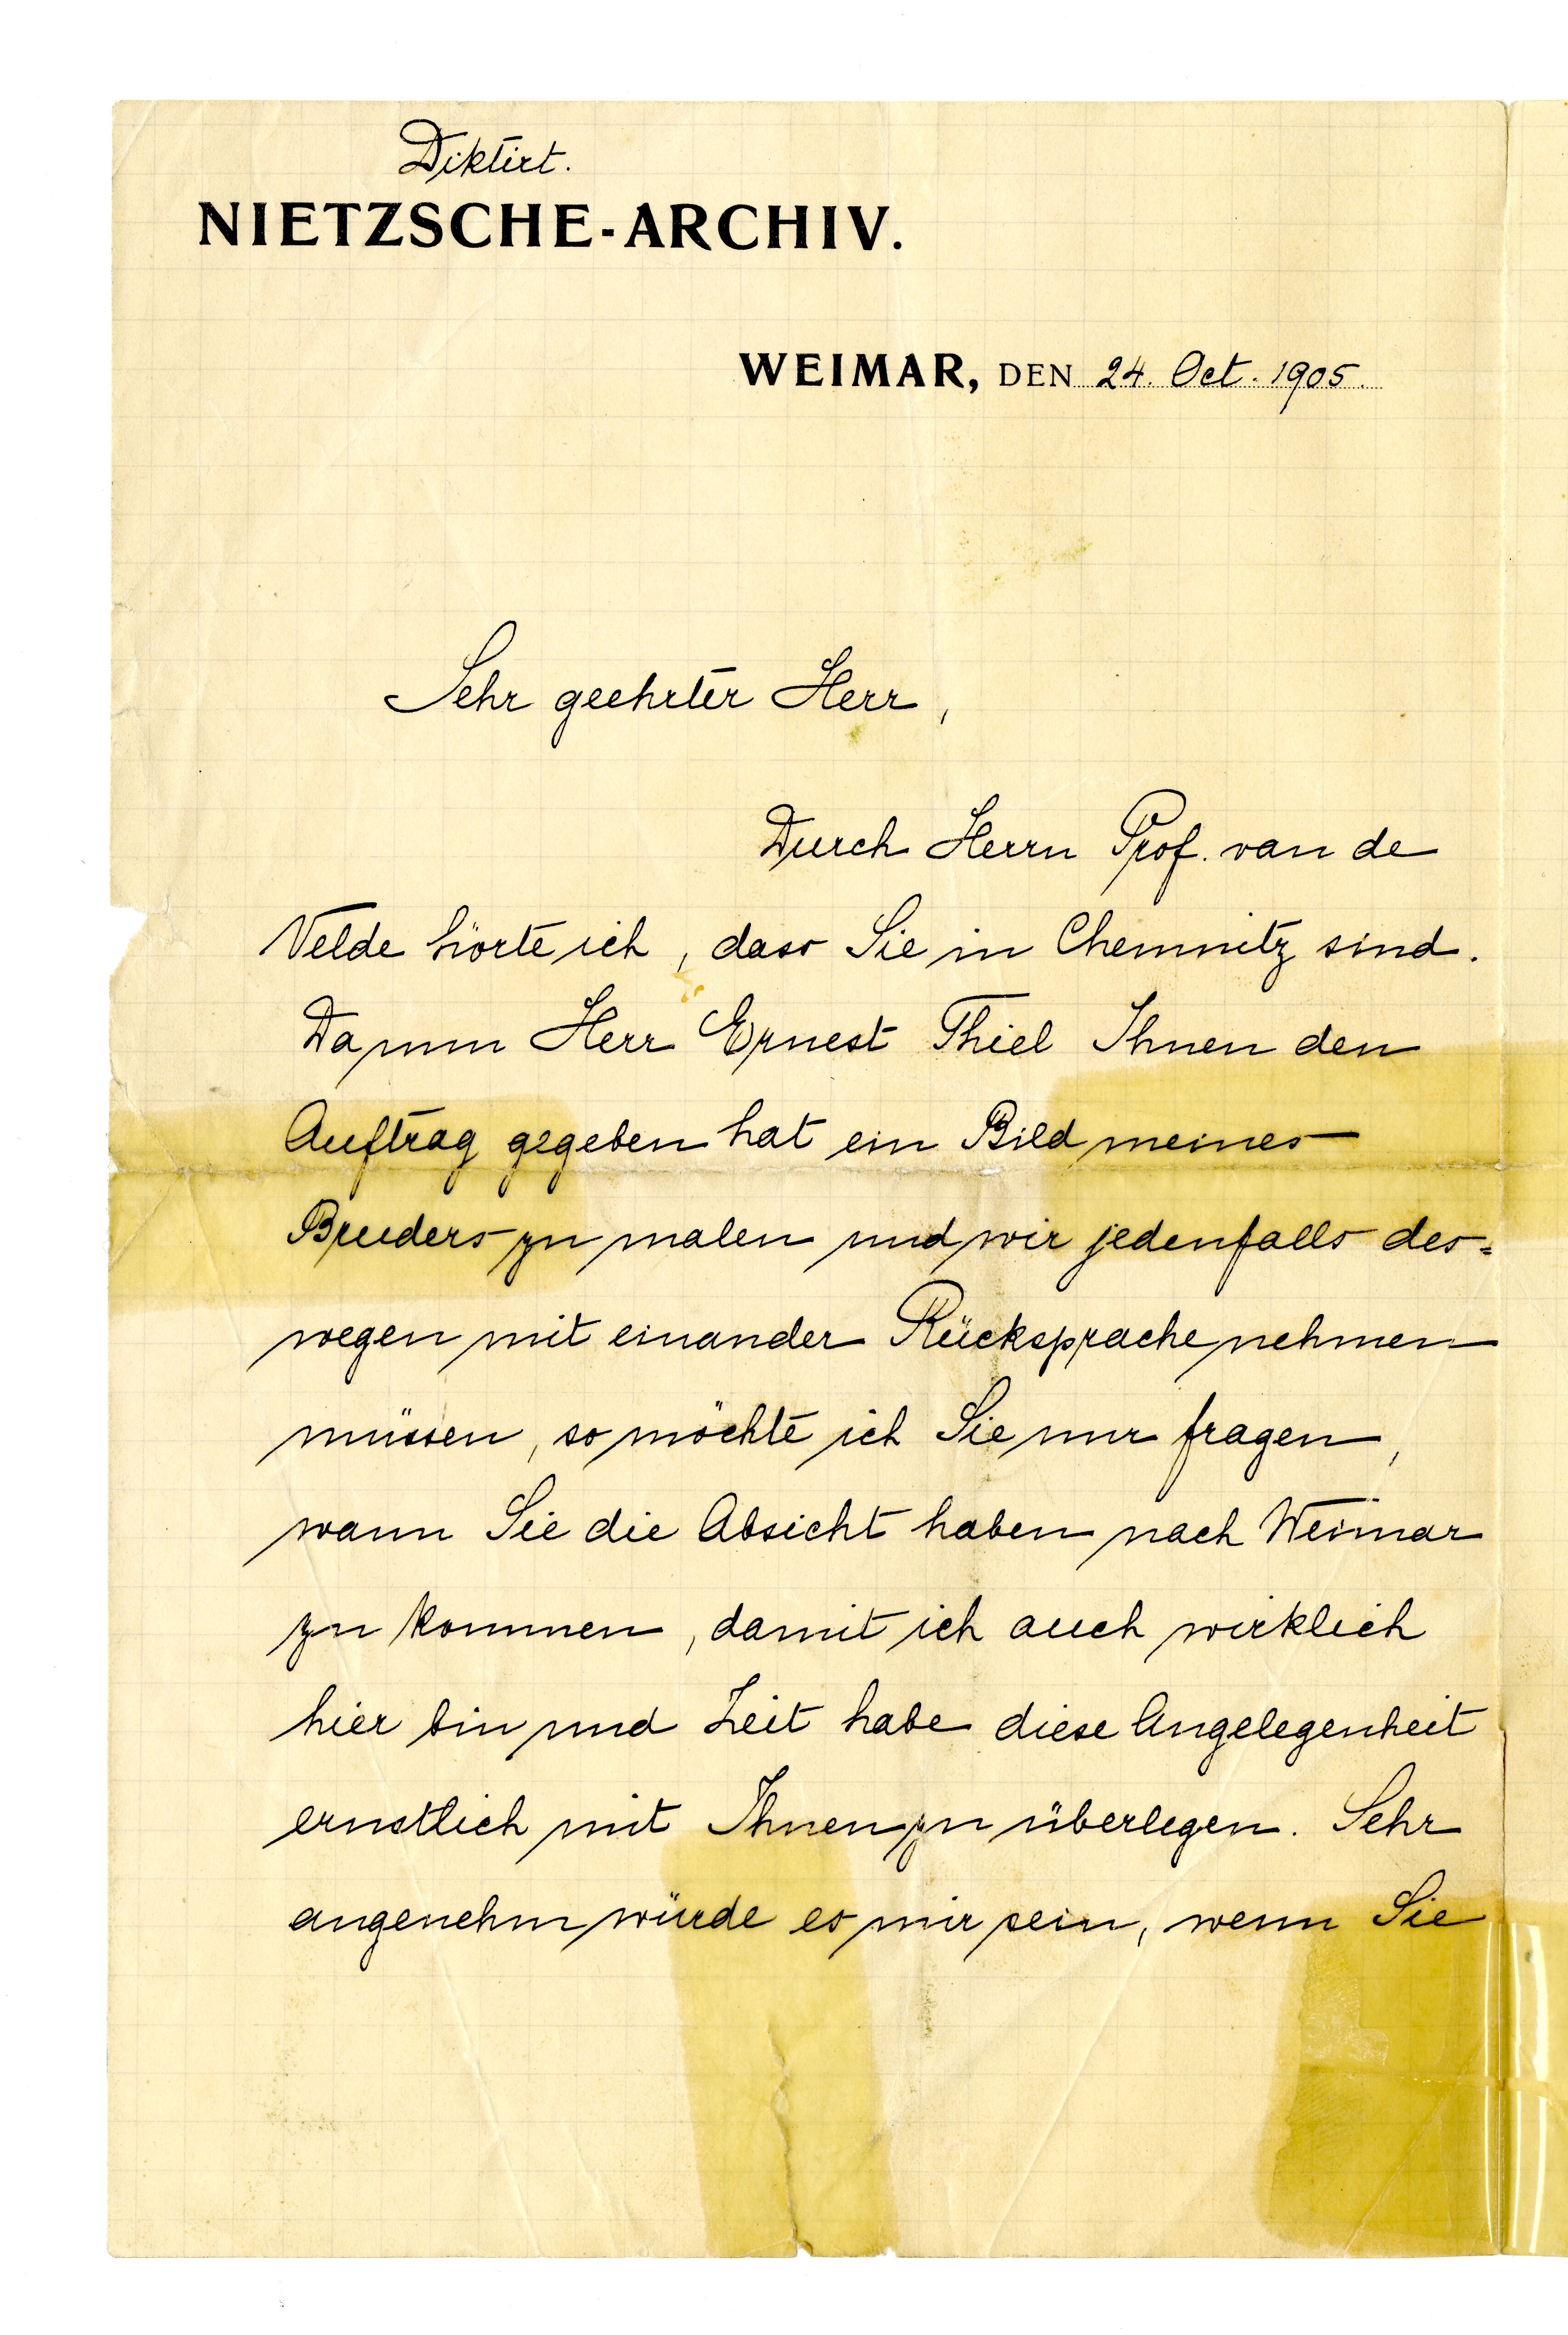 Diktirt.
NIETZSCHE-ARCHIV.
WEIMAR, DEN 24. Oct. 1905.
Sehr geehrter Herr,
Durch Herrn Prof. van de
Velde hörte ich, dass Sie in Chemnitz sind.
Da nun Herr Ernest Thiel Ihnen den
Auftrag gegeben hat ein Bild meines
Bruders zu malen und wir jedenfalls des=
wegen mit einander Rücksprache nehmen
müssen, so möchte ich Sie nur fragen,
wann Sie die Absicht haben nach Weimar
zu kommen, damit ich auch wirklich
hier bin und Zeit habe diese Angelegenheit
ernstlich mit Ihnen zu überlegen. Sehr
angenehm würde es mir sein, wenn Sie